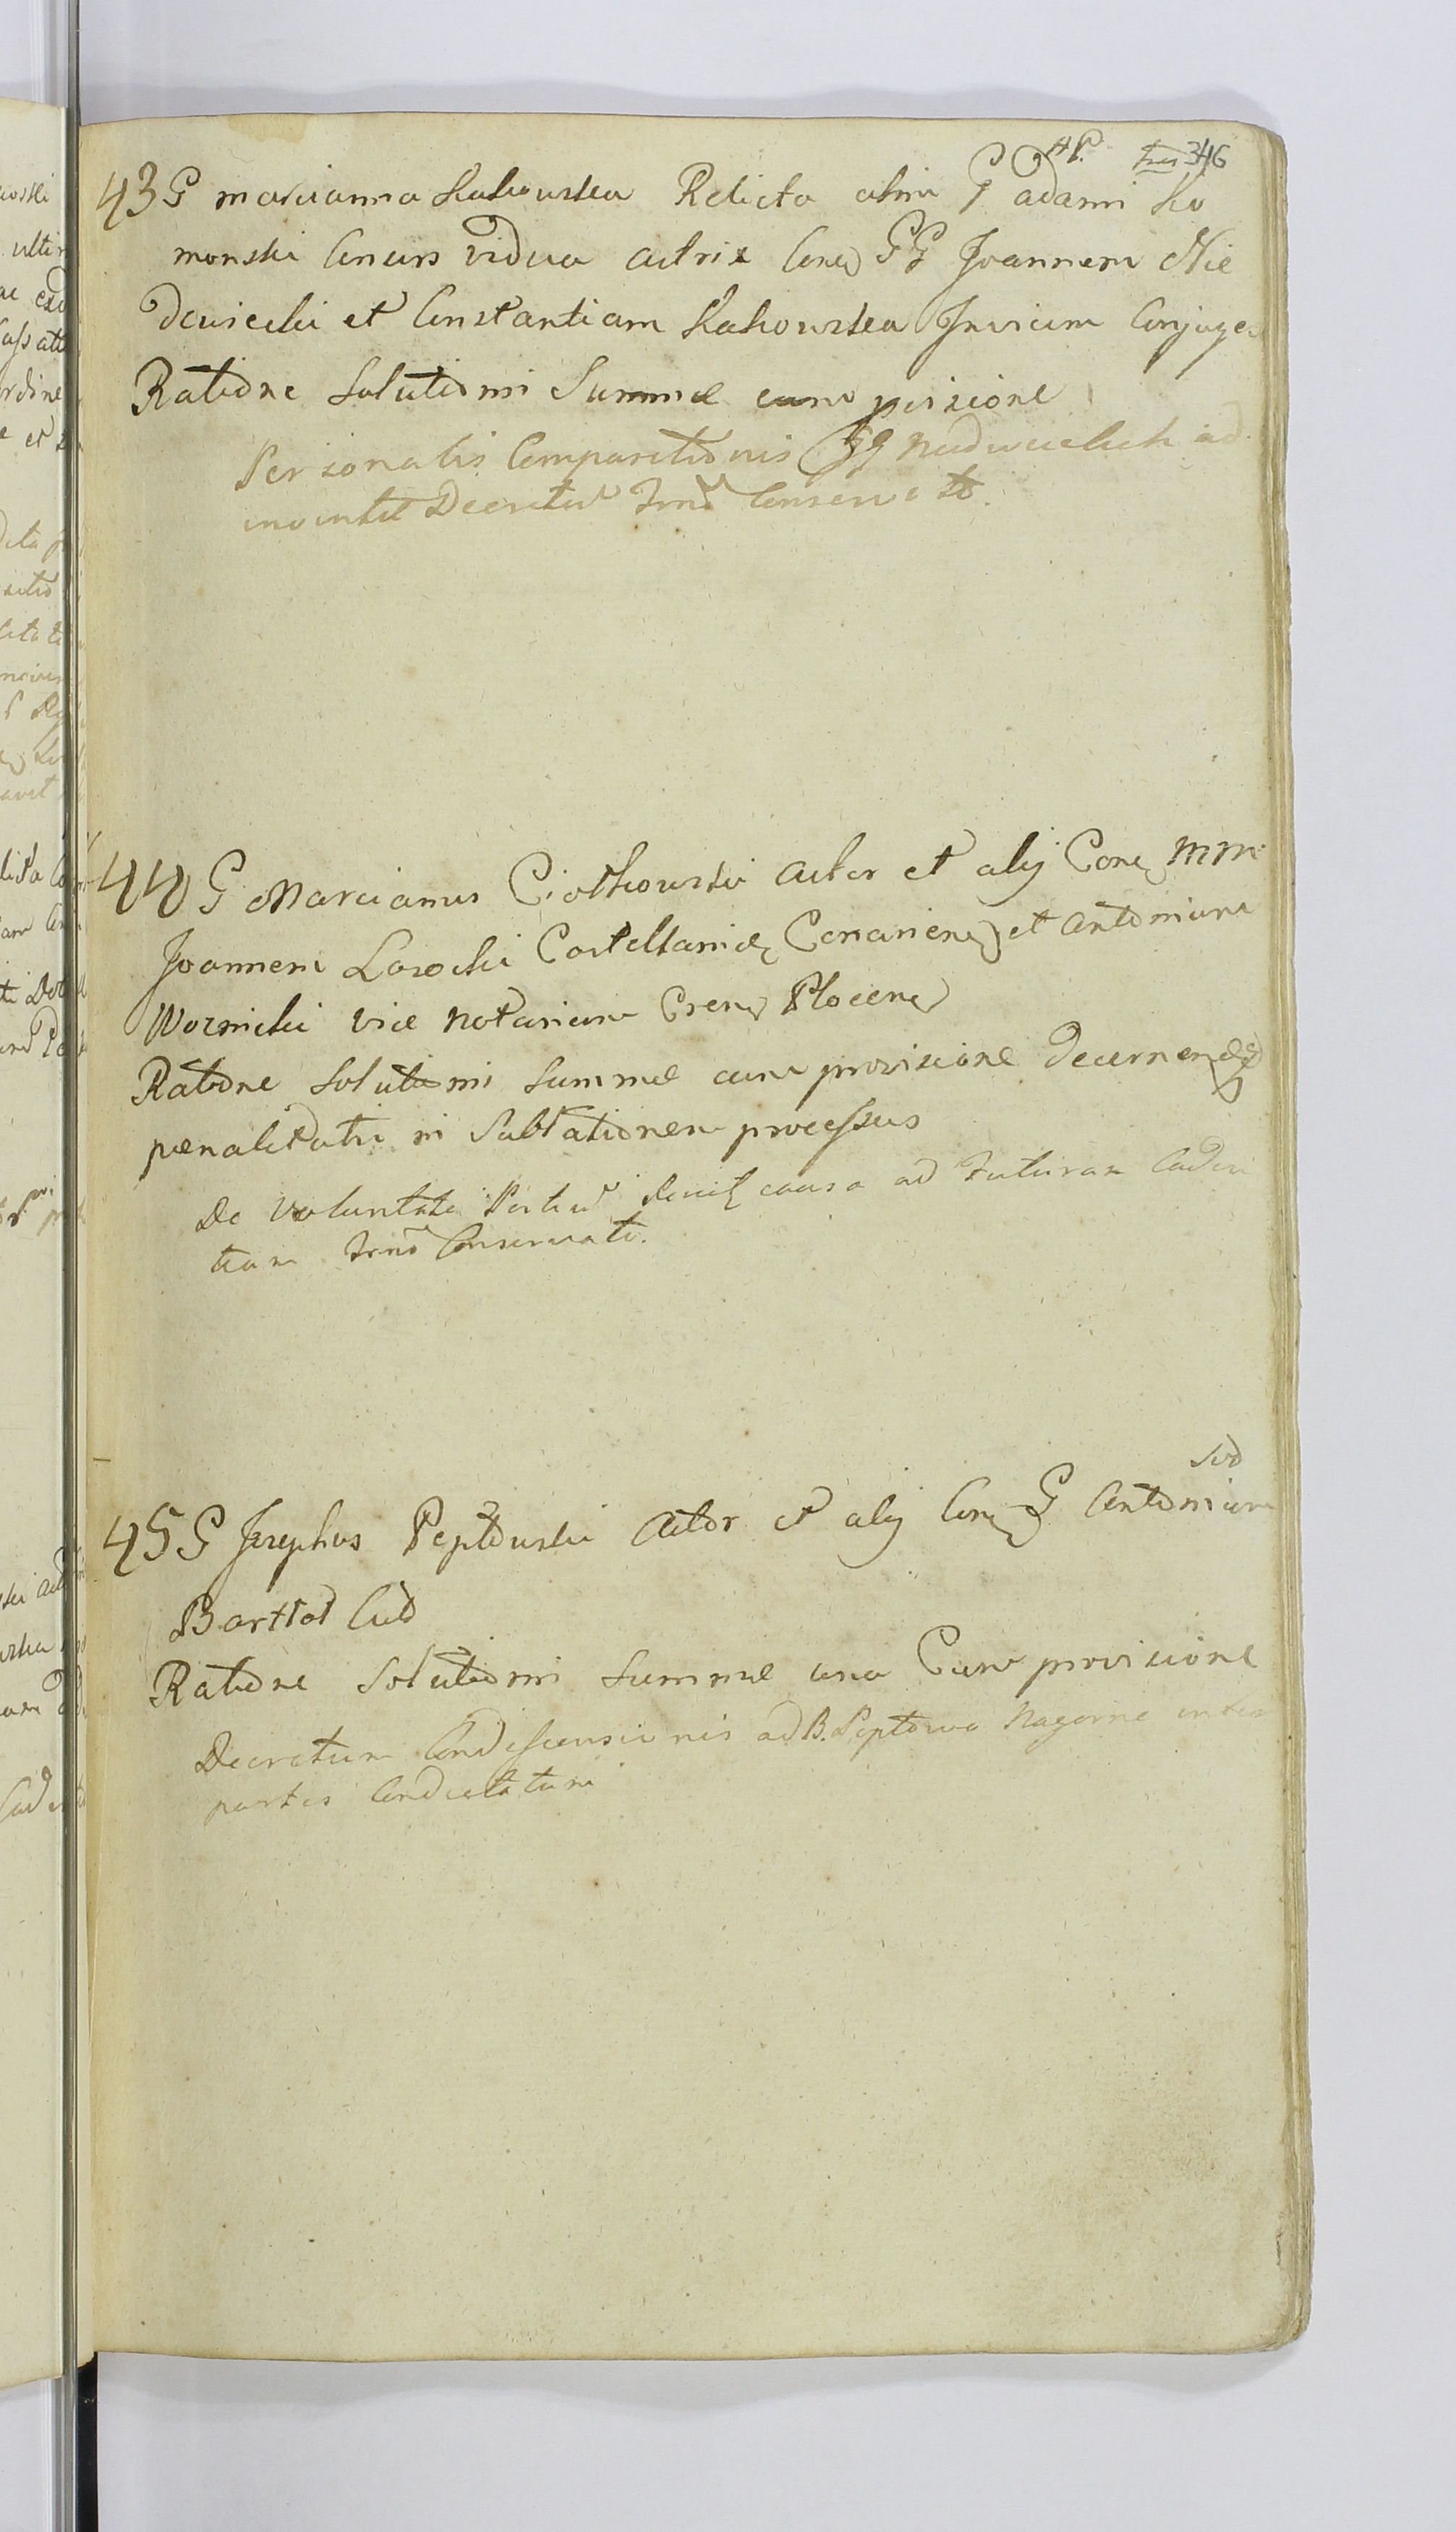 346
43 G Marianna Rakowska Relicta olim G Adami Ko
monski Consors vidua actrix Cone GG Joannem Nie
dzwiecki et Constantiam Rakowska Invicem Conjuges
Ratione Solutionis Summae cum provisione
Personalis Comparitionis GG Niedzwieckich ad
Decretum Trno Conservato
44 G Marcianus Ciotkowski Actor et alij Cone MM
Joannem Lasocki Castellanid Conarien et Antonium
Woznicki vice Notarium Cren Plocen
Ratione Solutionis Summae cum provisione decernend
penalitatis in Sublationem processus
De Voluntate Partium causa ad Futuram Caden
tiam Trno Conservata.
45 G Josephus Peptowski Actor et alij Cone G Antonium
Barttol Cud
Ratione Solutionis Summae una Cum provisione
Decretum Condescensionis ad B. Peptowo Nagorne inter
partes Conductatum